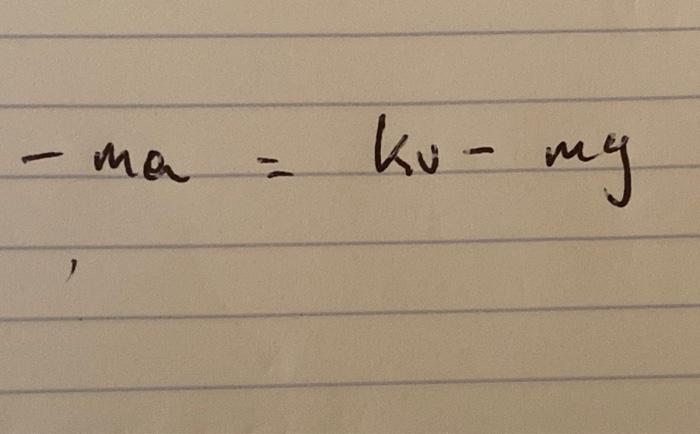 - ma = kv - mg